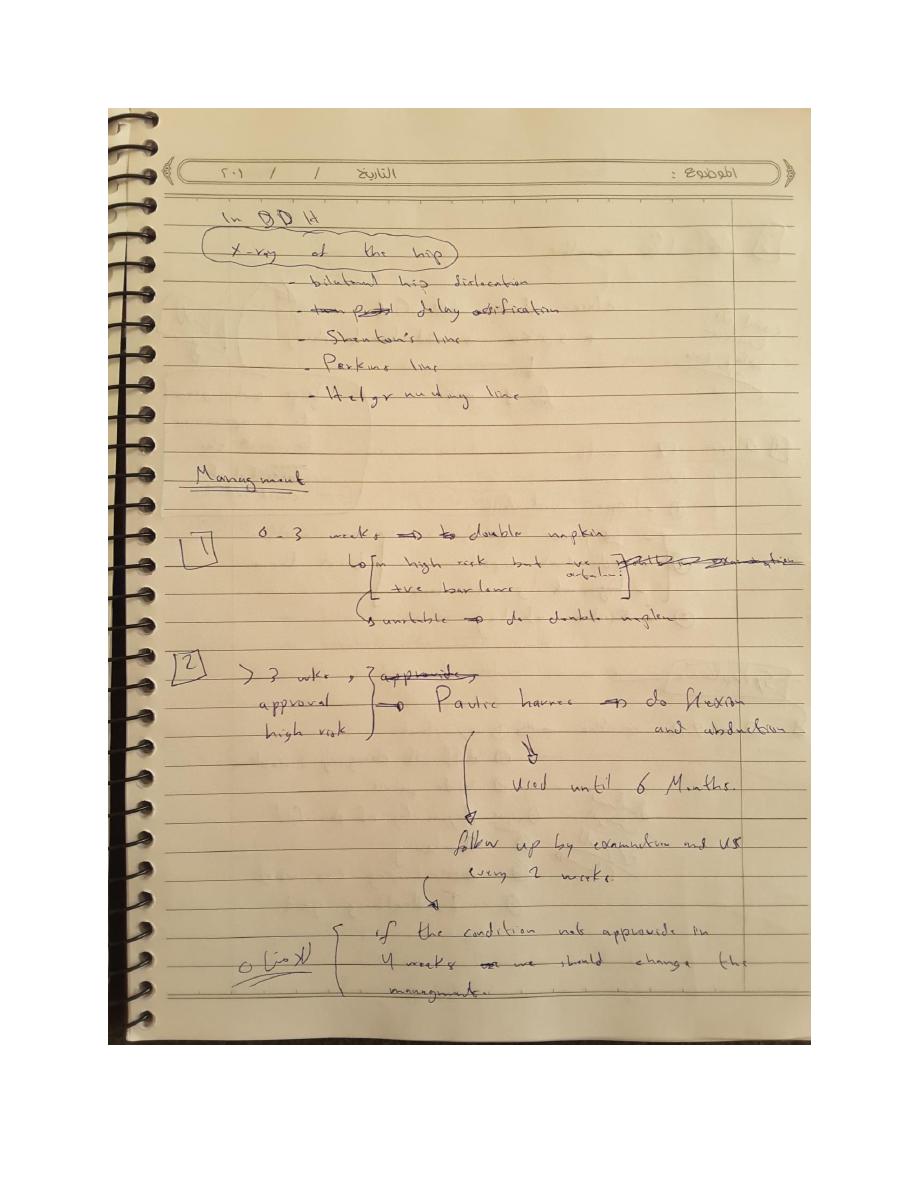 الموضوع : التاريخ / / ٢٠١
In DDH
X-ray of the hip
- bilateral hip dislocation
- delay ossification
- Shenton's line
- Perkins line
- line
Managment
1 0 - 3 weeks → double napkin
in high risk but -ve
+ve barlows
unstable → do double napken
2 > 3 wks, approvide,
approval → Pavlic harnes → do flexion
high risk and abduction
used until 6 Months.
follow up by examination and US
every 2 weeks.
if the condition not approvide in
للامتحان 4 weeks we should change the
managment.